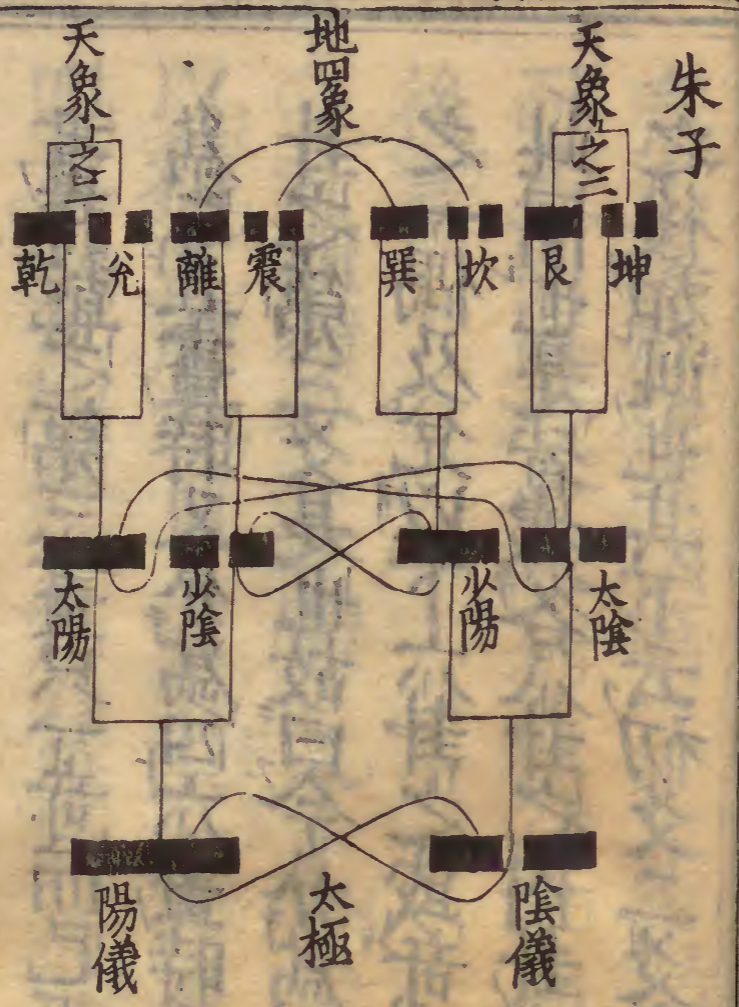 朱子
天象之二
地四象
天象之二
坤
艮
坎
巽
震
離
兊
乾
太隂
少陽
少隂
太陽
隂儀
太極
陽儀